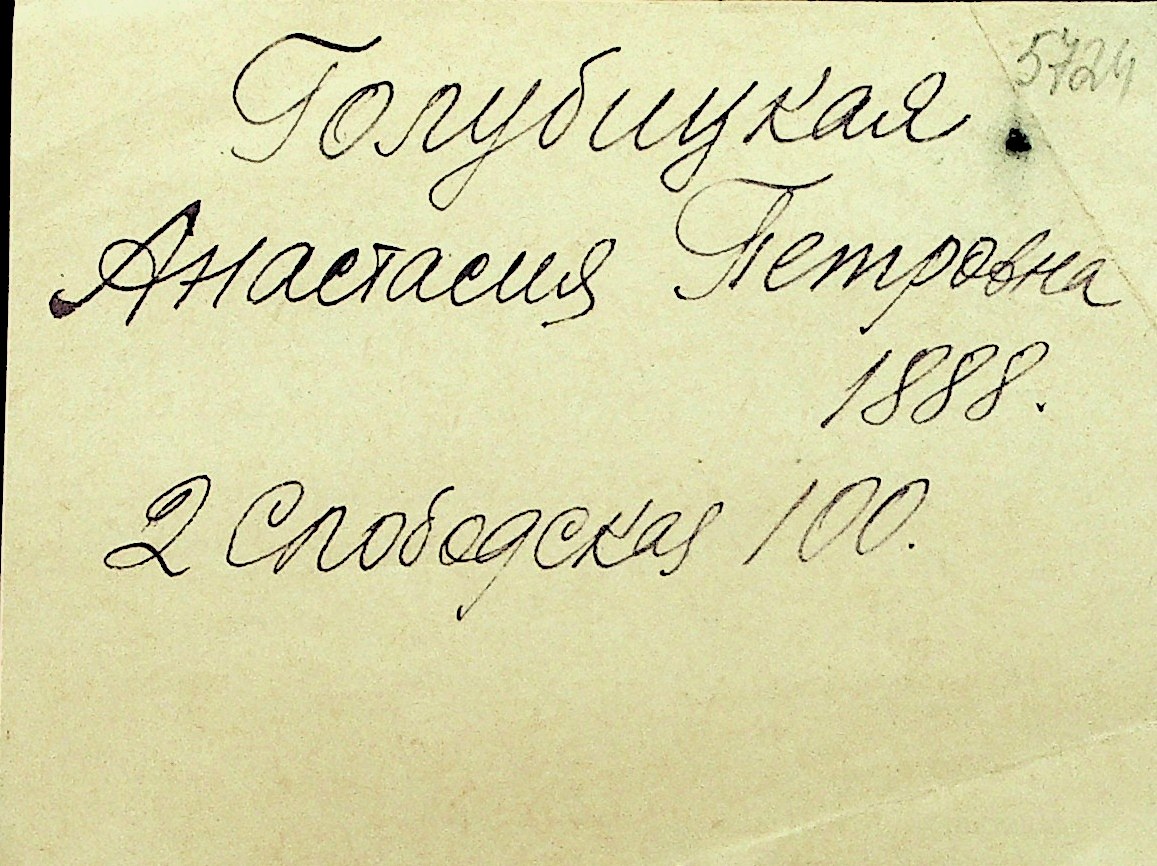 5724
Голубицкая
Анастасия Петровна
1888.
2 Слободская 100.